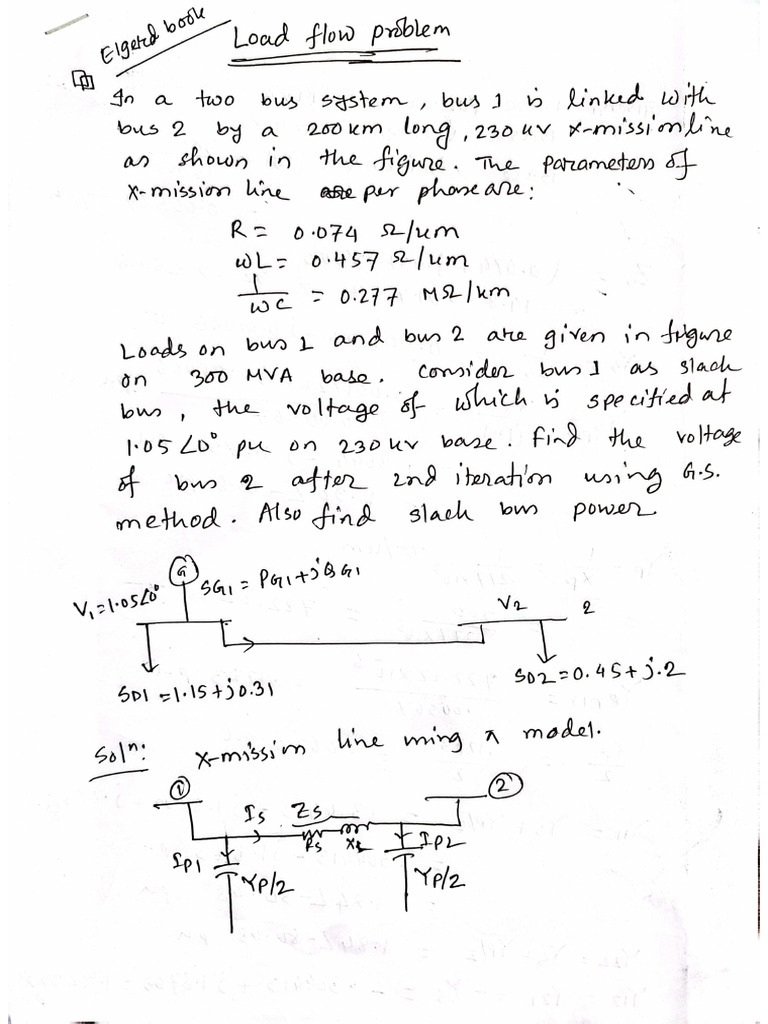 Elgerd book
Load flow problem
In a two bus system, bus 1 is linked with
bus 2 by a 200 km long, 230 kv x-mission line
as shown in the figure. The parameters of
x-mission line per phase are:
R = 0.074 Ω/km
ωL = 0.457 Ω/km
1/ωC = 0.277 MΩ/km
Loads on bus 1 and bus 2 are given in figure
on 300 MVA base. Consider bus 1 as slack
bus, the voltage of which is specified at
1.05∠0° pu on 230 kv base. Find the voltage
of bus 2 after 2nd iteration using G.S.
method. Also find slack bus power.
G
SG1 = PG1 + jQG1
V1 = 1.05∠0°
V2 2
SD1 = 1.15 + j0.31
SD2 = 0.45 + j.2
Soln: x-mission line using π model.
1 2
Is Zs
Rs XL
IP1 IP2
YP/2 YP/2